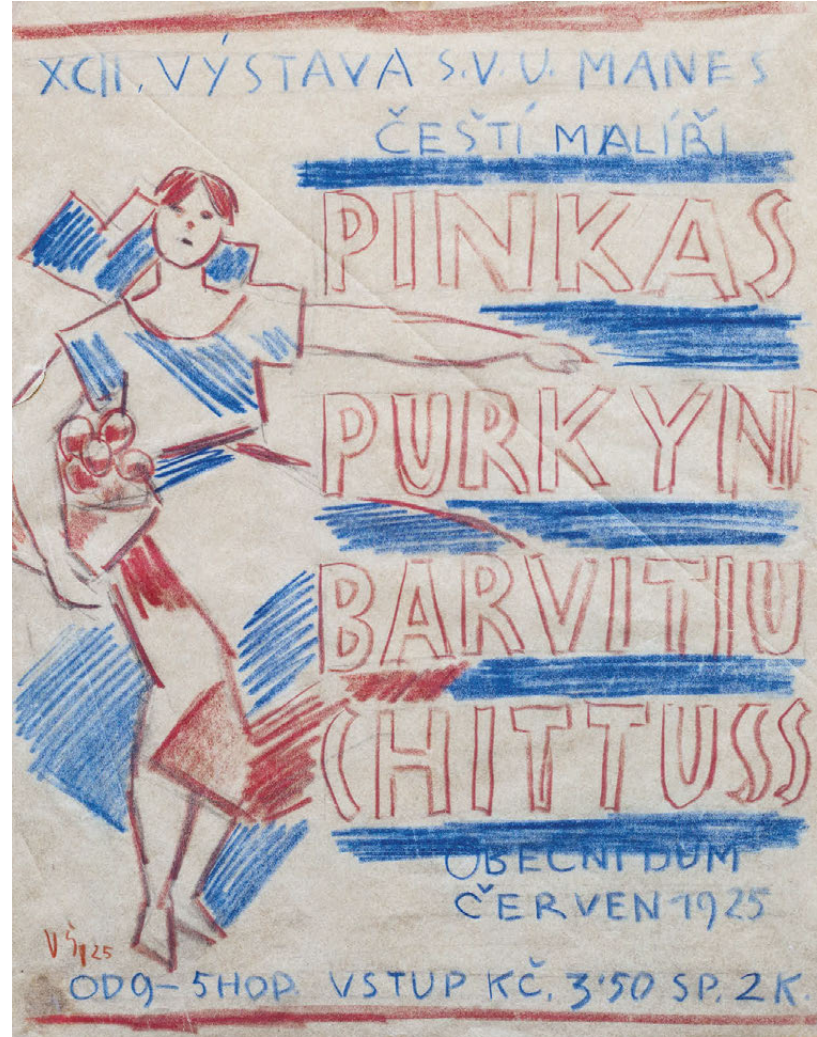 XCII. VÝSTAVA S.V.U. MANES
ČEŠTÍ MALÍŘI
PINKAS
PURKYN
BARVITIU
CHITTUSS
OBECNÍ DUM
ČERVEN 1925
VŠ, 25
OD 9 – 5 HOD. VSTUP KČ. 3'50 SP. 2 K.